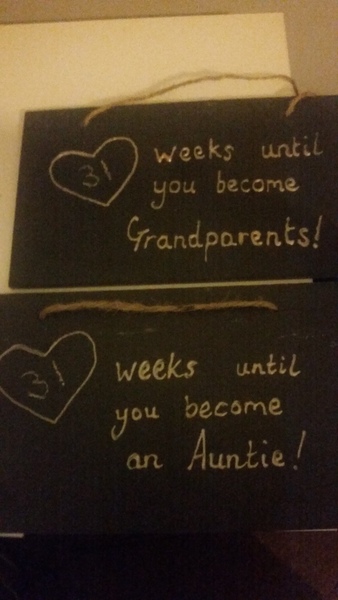 31 weeks until
you become
Grandparents!
31 weeks until
you become
an Auntie!